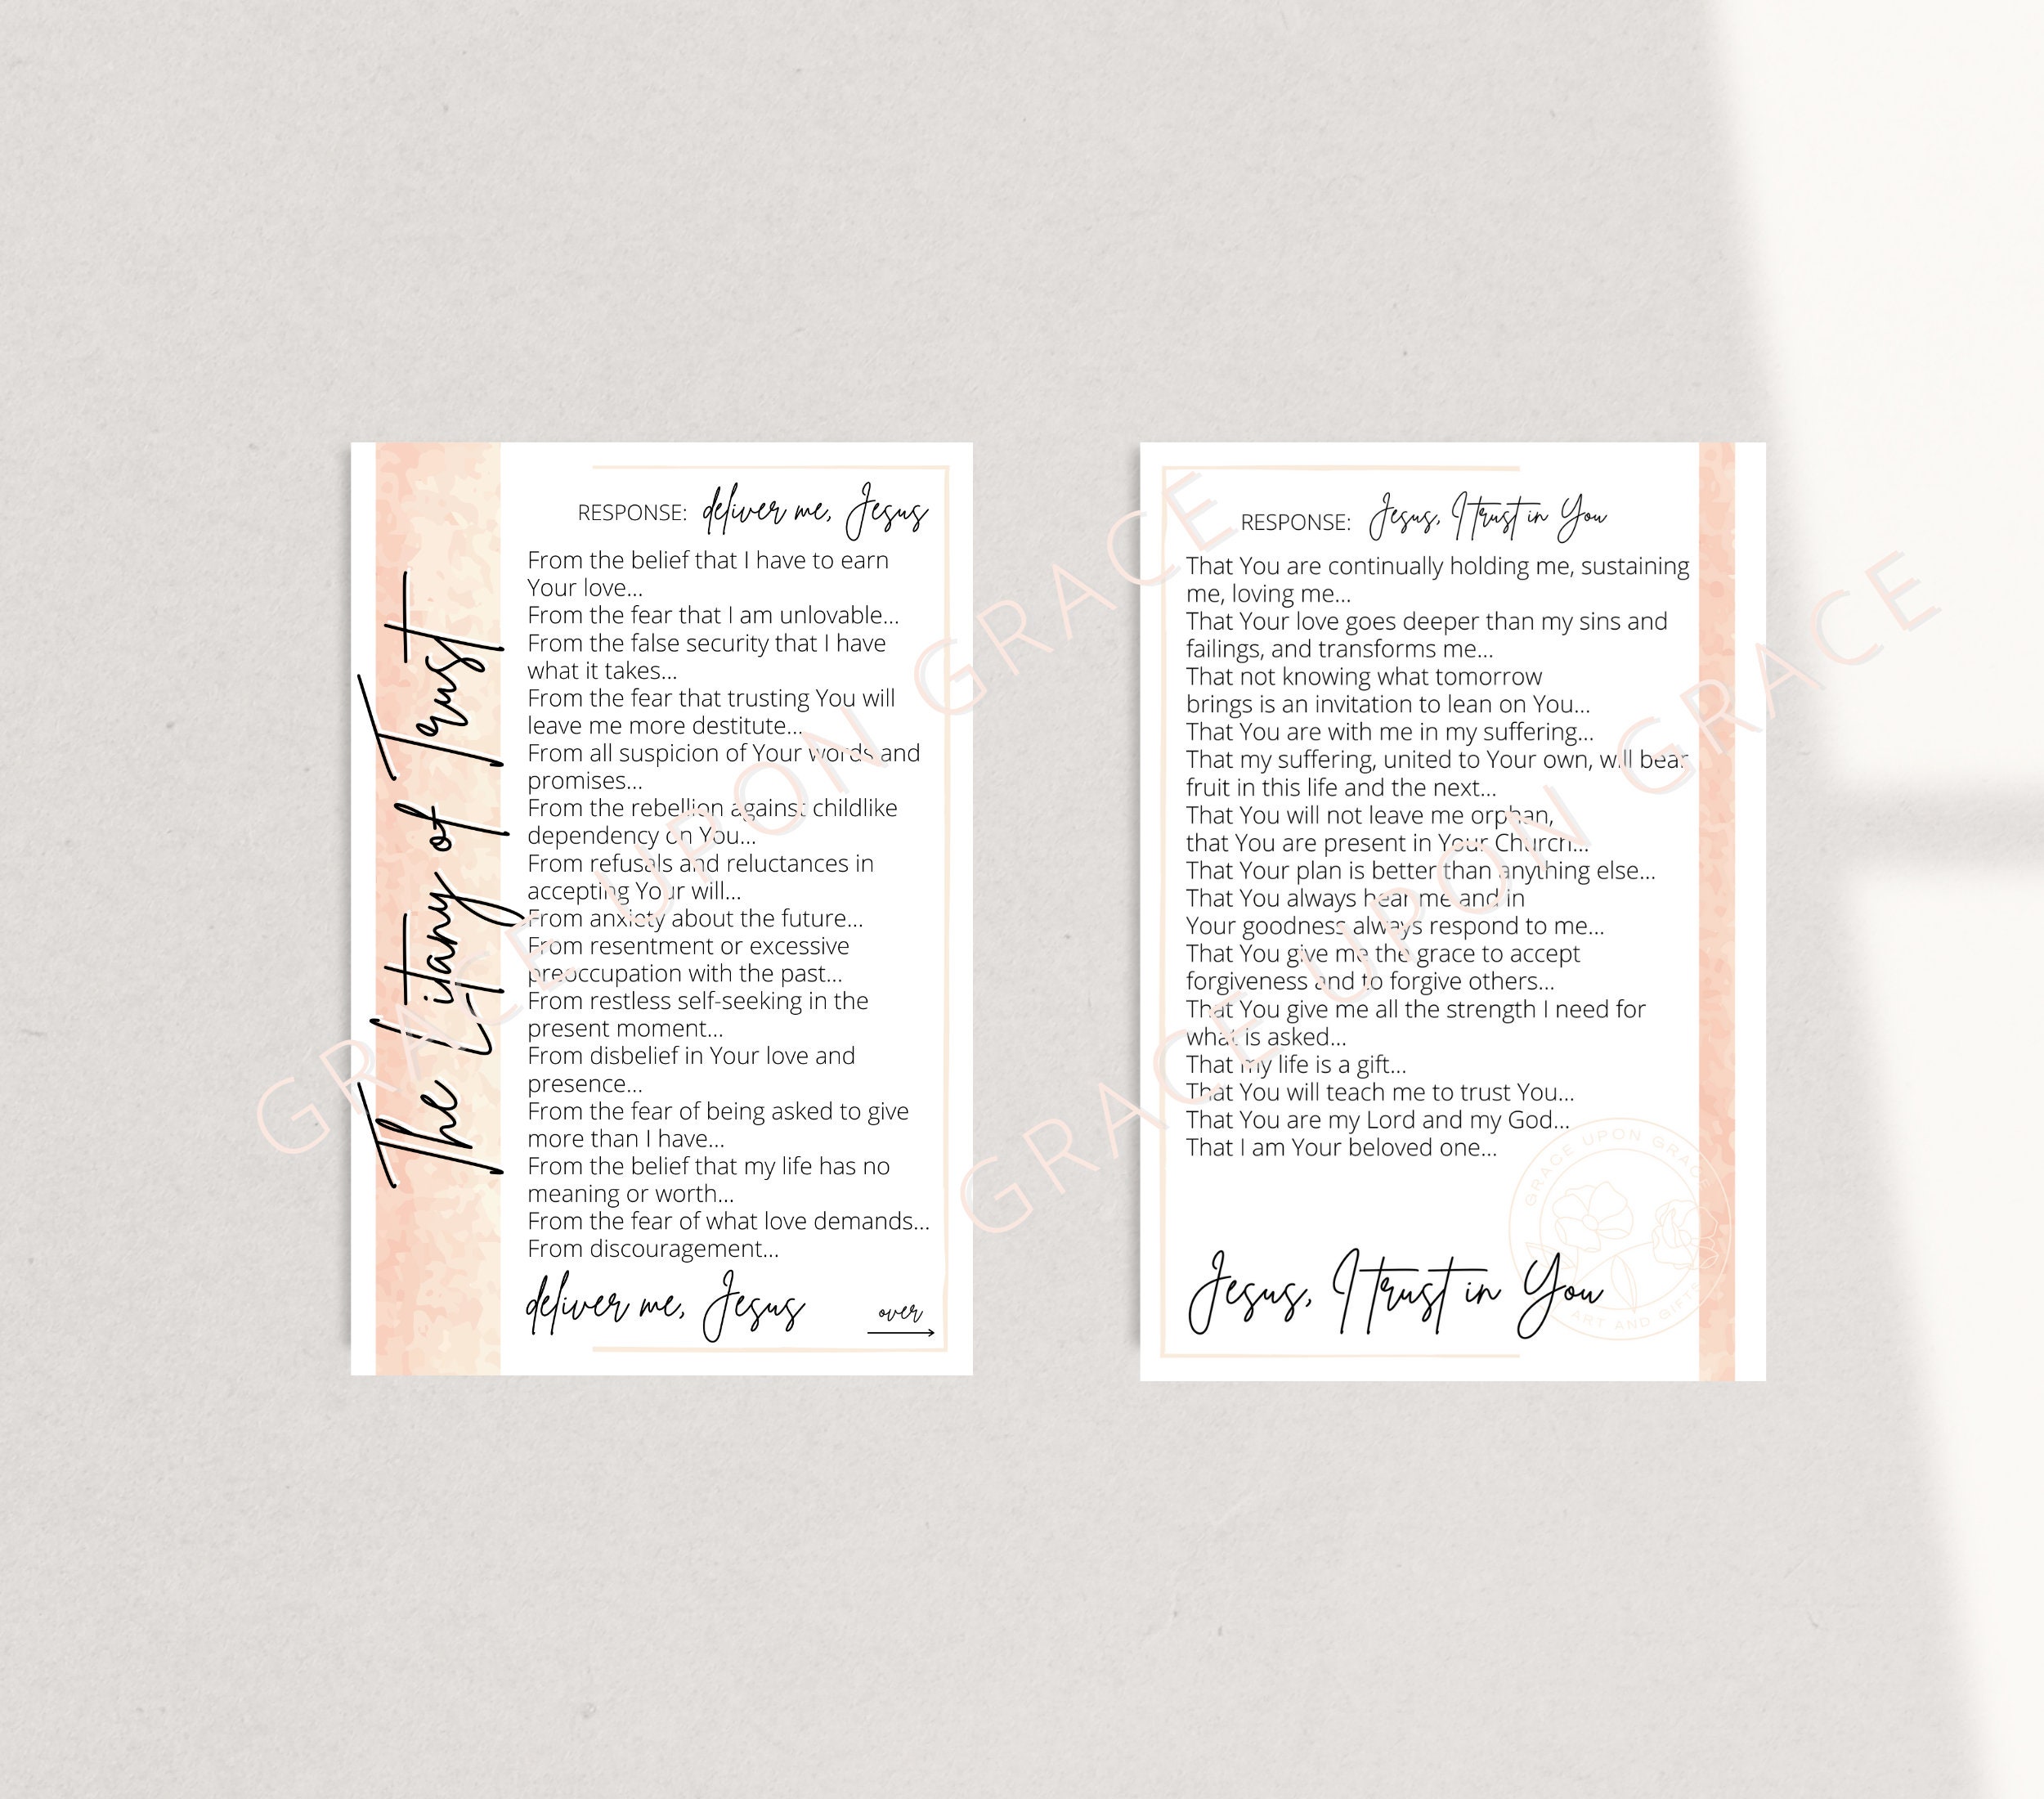 The Litany of Trust
RESPONSE: deliver me, Jesus
From the belief that I have to earn
Your love...
From the fear that I am unlovable...
From the false security that I have
what it takes...
From the fear that trusting You will
leave me more destitute...
From all suspicion of Your words and
promises...
From the rebellion against childlike
dependency on You...
From refusals and reluctances in
accepting Your will...
From anxiety about the future...
From resentment or excessive
preoccupation with the past...
From restless self-seeking in the
present moment...
From disbelief in Your love and
presence...
From the fear of being asked to give
more than I have...
From the belief that my life has no
meaning or worth...
From the fear of what love demands...
From discouragement...
deliver me, Jesus
over
GRACE UPON GRACE
RESPONSE: Jesus, I trust in You
That You are continually holding me, sustaining
me, loving me...
That Your love goes deeper than my sins and
failings, and transforms me...
That not knowing what tomorrow
brings is an invitation to lean on You...
That You are with me in my suffering...
That my suffering, united to Your own, will bear
fruit in this life and the next...
That You will not leave me orphan,
that You are present in Your Church...
That Your plan is better than anything else...
That You always hear me and in
Your goodness always respond to me...
That You give me the grace to accept
forgiveness and to forgive others...
That You give me all the strength I need for
what is asked...
That my life is a gift...
That You will teach me to trust You...
That You are my Lord and my God...
That I am Your beloved one...
Jesus, I trust in You
GRACE UPON GRACE
ART AND GIFTS
GRACE UPON GRACE